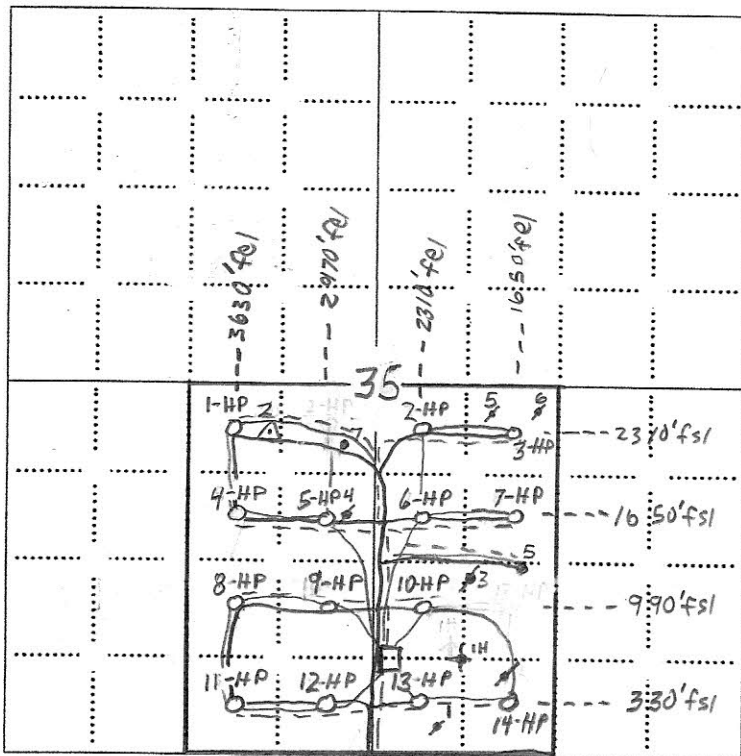 3630'fel
2970'fel
2310'fel
1650'fel
35
1-HP 2 2-HP 5 6
7 3-HP 2310'fsl
4-HP 5-HP 4 6-HP 7-HP 1650'fsl
5
8-HP 9-HP 10-HP 3 990'fsl
1H
11-HP 12-HP 13-HP 330'fsl
1 14-HP